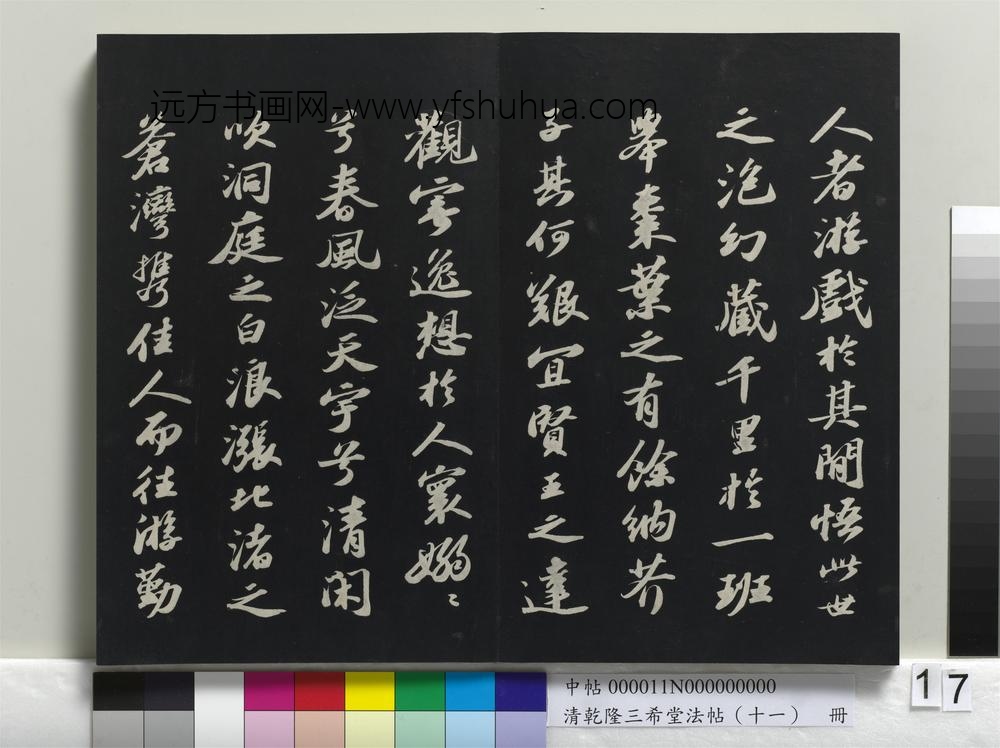 远方书画网-www.yfshuhua.com
人者游戲於其間悟此世
之泡幻藏千里於一班
舉棗葉之有餘納芥
子其何艱宜賢王之達
觀寄逸想於人寰嫋〻
兮春風泛天宇兮清閑
吹洞庭之白浪漲北渚之
蒼灣攜佳人而往游勤
中帖 000011N000000000
清乾隆三希堂法帖（十一） 冊
17